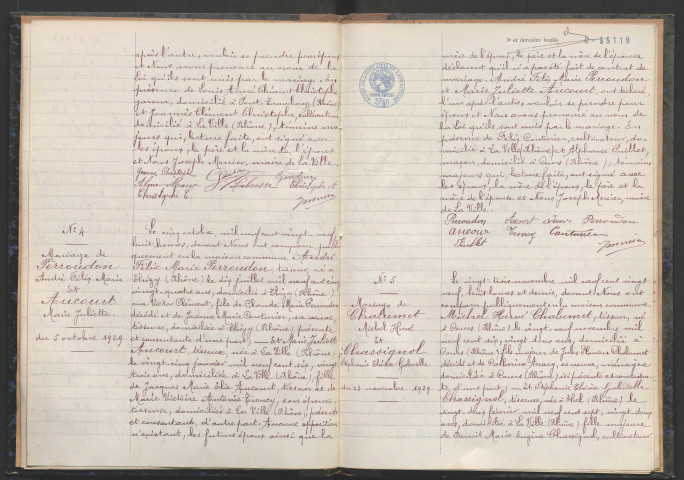 après l'autre, vouloir se prendre pour époux
et Nous avons prononcé au nom de la
Loi qu'ils sont unis par le mariage. En
présence de Louis Aimé Clément Christophe
domicilié à (Rhône)
et Joannès Clément Christophe, cultivateur,
domicilié à La Ville (Rhône), témoins ma-
jeurs qui, lecture faite, ont signé avec
les époux, le père et la mère de l'époux
et Nous Joseph Monier, maire de La Ville.
Christophe et
Christophe C.
N: 4
Mariage de
Perroudon
André Félix Marie
Et
Aucourt
Marie Juliette.
du 5 octobre 1929
Le cinq octobre, mil neuf cent vingt-neuf,
huit heures, devant Nous ont comparu publi-
quement en la maison commune: André
Félix Marie Perroudon, tisseur, né à
Thizy (Rhône) le dix juillet mil neuf cent cinq
vingt quatre ans, domicilié à Thizy (Rhône)
rue fils de Claude Marie Perroudon
décédé et de Jeanne Marie Couturier, sa veuve,
tisseuse, domiciliée à Thizy (Rhône) présente
et consentante d'une part, — Et Marie Juliette
Aucourt, tisseuse, née à La Ville (Rhône)
le vingt-cinq mil neuf cent six, vingt
trois ans, domiciliée à La Ville (Rhône), fille
de Jacques Marie Élie Aucourt, tisseur et de
Marie Victoire Antonia son épouse,
tisseuse, domiciliés à La Ville (Rhône), présents
et consentants, d'autre part. Aucune opposition
n'existant, les futurs époux ainsi que la
et dernière feuille
35119
mère de l'époux, le père et la mère de l'épouse
déclarent qu'il n'a pas été fait de contrat de
mariage. André Félix Marie Perroudon
et Marie Juliette Aucourt, ont déclaré,
l'un après l'autre, vouloir se prendre pour
époux et Nous avons prononcé au nom de
la Loi qu'ils sont unis par le mariage. En
présence de Félix Couturier, cultivateur, do-
micilié à La Ville (Rhône) et Alphonse Suillot,
maçon, domicilié à Cours (Rhône), témoins
majeurs qui, lecture faite, ont signé avec
les époux, la mère de l'époux, le père et la
mère de l'épouse et Nous Joseph Monier, maire
de La Ville.
Perroudon Aucourt Perroudon
Aucour Couturier
N: 5
Mariage de
Chalumet
Michel Hervé
Et
Chassignol
Stéphanie Elvina Gabrielle
du 23 novembre 1929
Le vingt-trois novembre mil neuf cent vingt
neuf, heures et demie, devant Nous ont
comparu publiquement en la maison commune
Michel Hervé Chalumet, tisseur, né
à Cours (Rhône) le vingt-neuf novembre mil
neuf cent six, vingt deux ans, domicilié à
Cours (Rhône) fils majeur de Jules Chalumet
décédé et de Catherine sa veuve, ménagère
domiciliée à Cours (Rhône)
d'une part; — et Stéphanie Elvina Gabrielle
Chassignol, tisseuse, née à (Rhône) le
vingt deux février mil neuf cent sept, vingt deux
ans, domiciliée à La Ville (Rhône) fille majeure
de Benoît Marie Eugène Chassignol, cultivateur